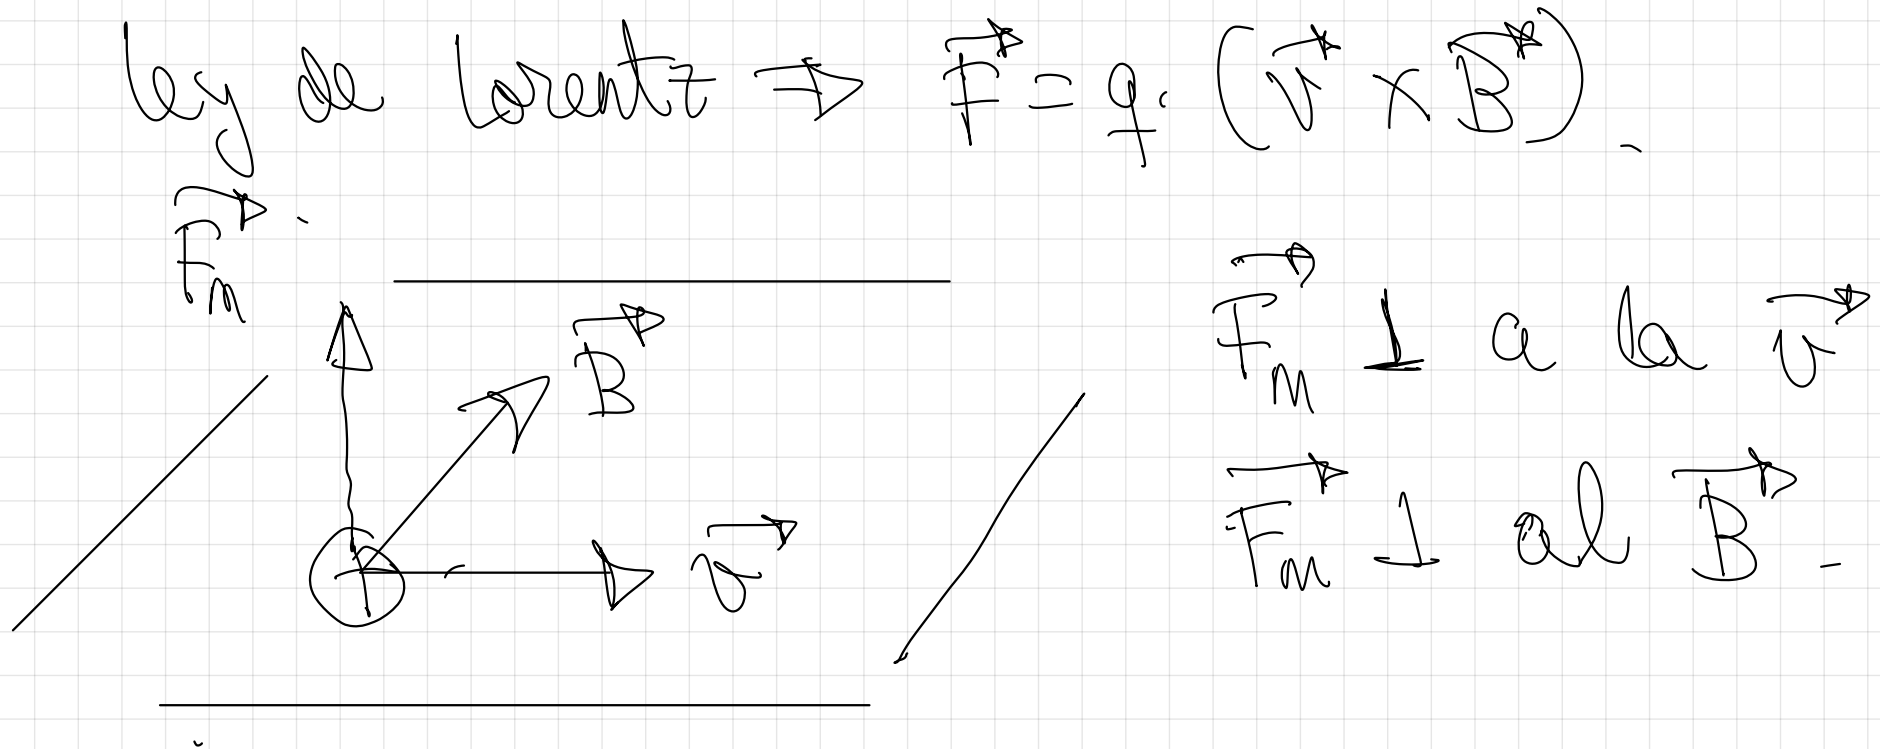 ley de lorentz ⇒ F⃗ = q. (v⃗ × B⃗).
F⃗m
B⃗
F⃗m ⊥ a la v⃗
v⃗
F⃗m ⊥ al B⃗.
+